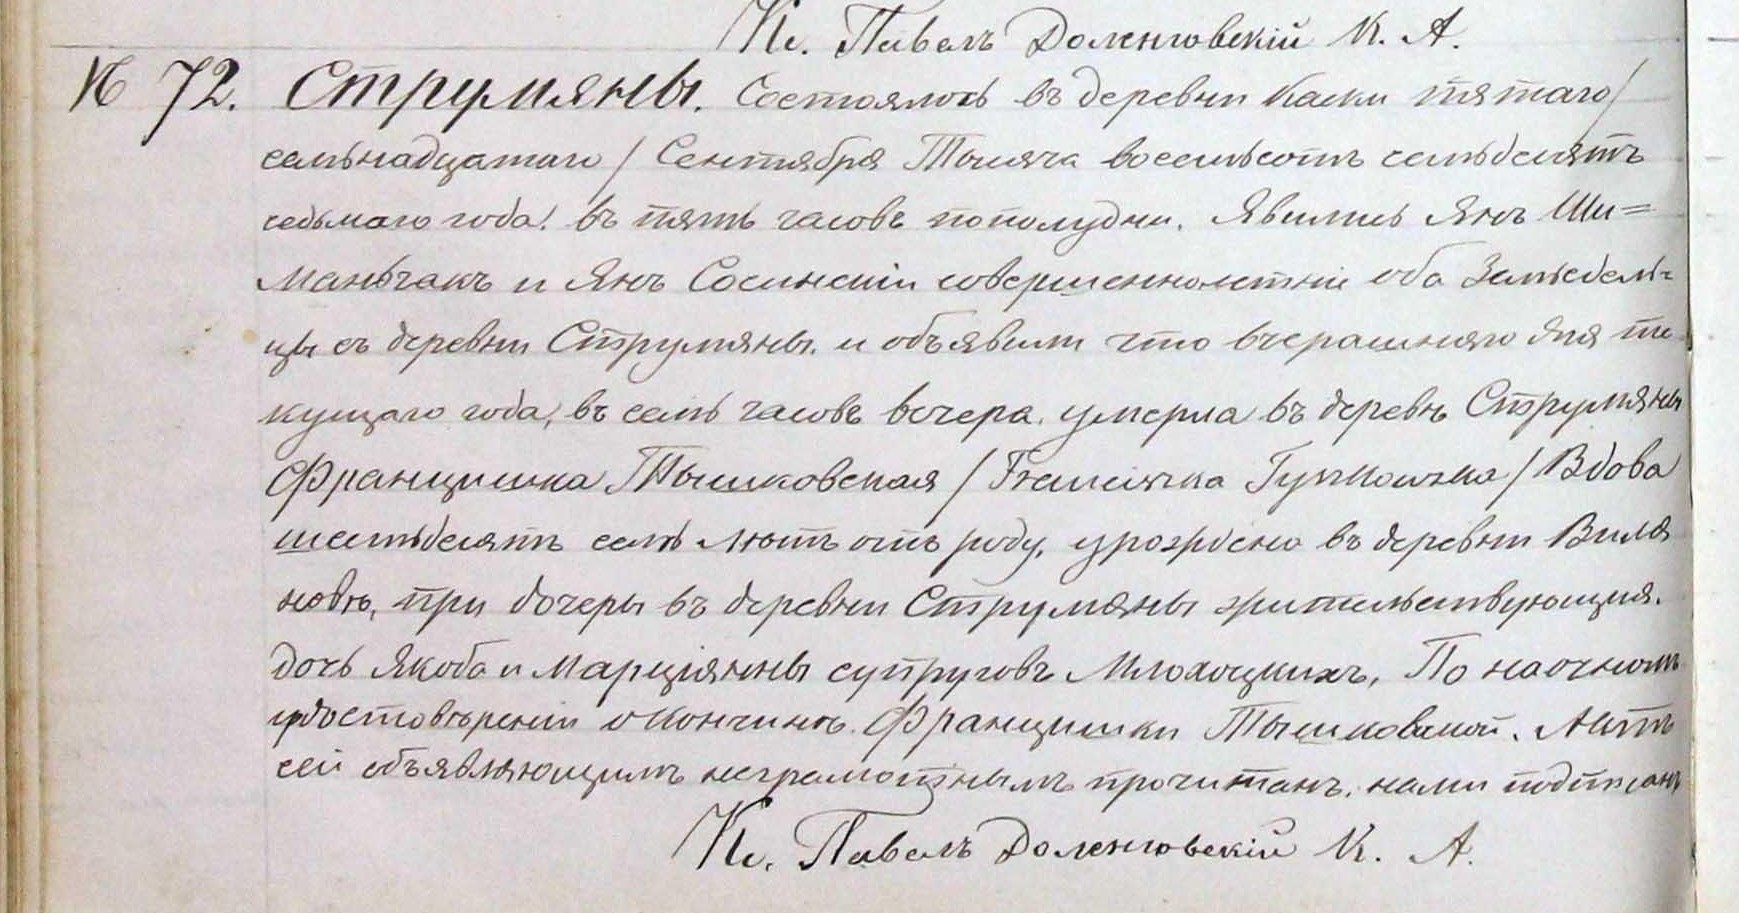 Кс. Павелъ Доленговскій К. А.
№ 72. Струмяны. Состоялось въ деревни Каски пятаго/
семьнадцатаго / Сентября Тысяча восемьсотъ семьдесятъ
седьмаго года! въ пять часовъ пополудни. Явились Янъ Ши=
маньчакъ и Янъ Сосински совершеннолѣтніе оба Земледель-
цы съ деревни Струмяны. и объявили что вчерашняго дня те
кущаго года, въ семь часовъ вечера. умерла въ деревнѣ Струмяны
Францишка Тышковская / Franciszka Tyszkowska / Вдова
шестьдесятъ семь лѣтъ отъ роду, урождена въ деревни Виля
новѣ, при дочеры въ деревни Струмяны жительствующия.
дочь Якоба и Марціянны супруговъ Млохоцкихъ, По наочномъ
удостовѣреніи о кончинѣ Францишки Тышковской. Актъ
сей объявляющимъ неграмотнымъ прочитанъ. нами подписанъ
Кс. Павелъ Доленговскій К. А.